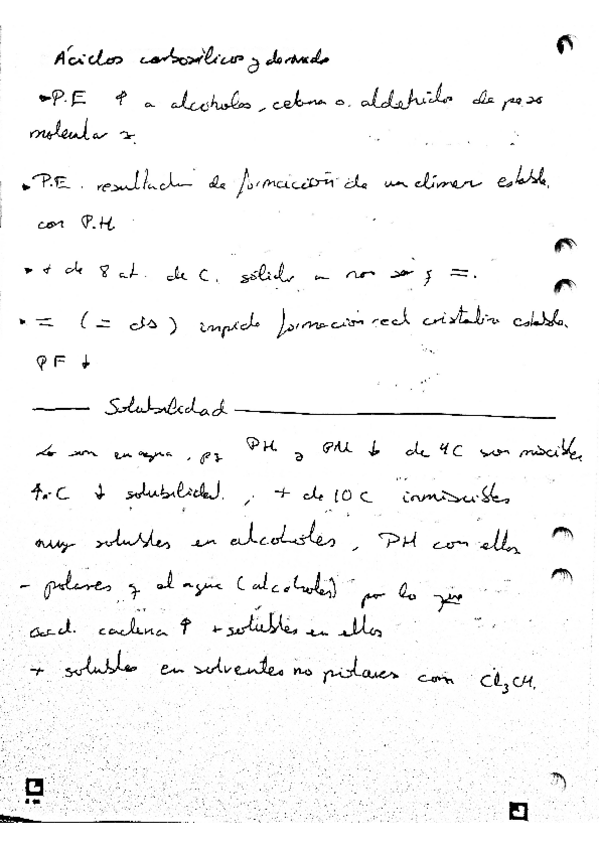 Ácidos carboxílicos y derivado
P.E ↑ a alcoholes, cetona o. aldehidos de peso
molecular
P.E. resultado de formación de un dimer estable,
con P.H.
+ de 8 at. de C. solido a no ser q =.
= (= cis) impide formación red cristalin estable.
PF ↓
Solubilidad
Lo son en agua, pq PH y PM ↓ de 4C son miscibles
↑ C ↓ solubilidad. , + de 10 C inmiscibles
muy solubles en alcoholes, PH con ellos
- polares q el agua (alcoholes) por lo que
acd. cadena ↑ + solubles en ellos
+ solubles en solventes no polares com Cl₃CH.